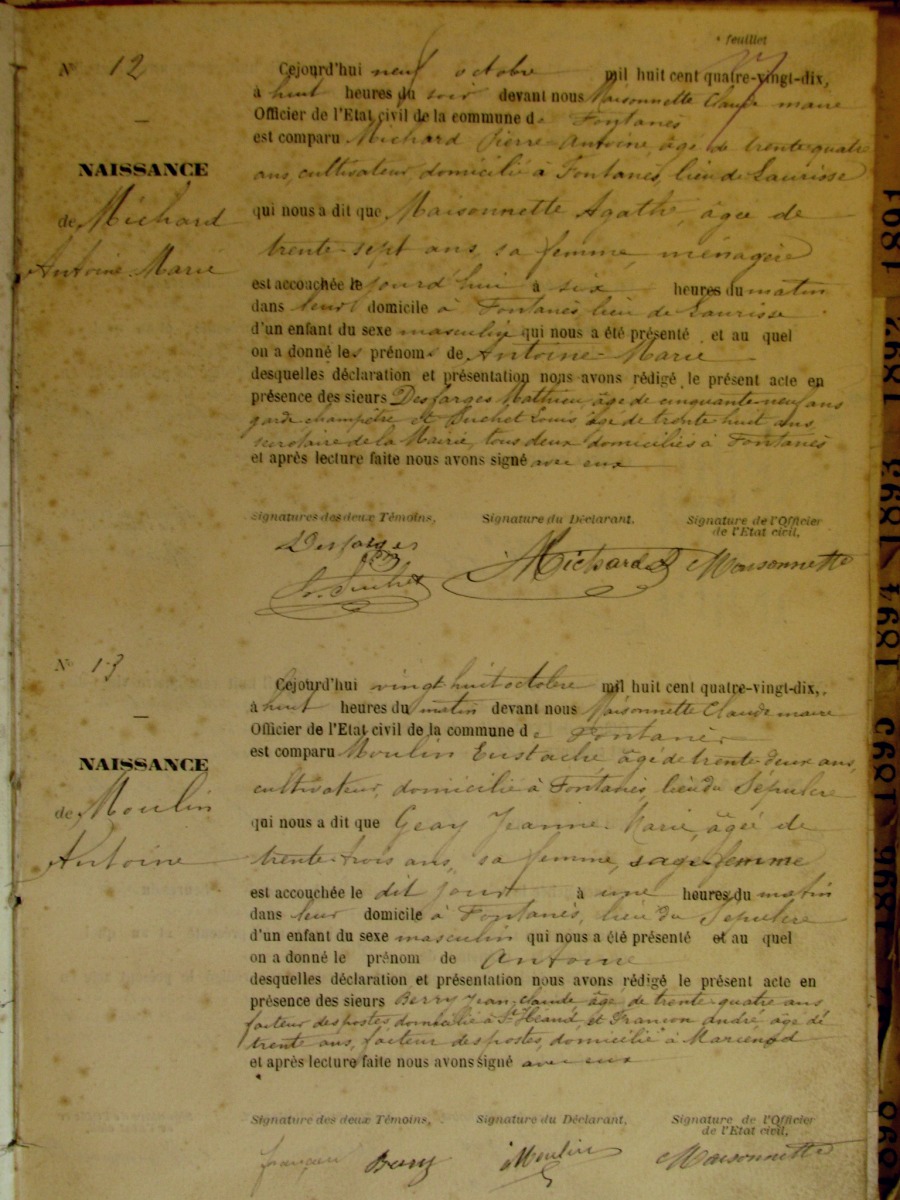 feuillet
N° 12
Cejourd'hui neuf octobre mil huit cent quatre-vingt-dix,
à huit heures du soir devant nous Maisonnette Claude maire
Officier de l'Etat civil de la commune de Fontanès
est comparu Michard Pierre Antoine, âgé de trente quatre
ans, cultivateur, domicilié à Fontanès, lieu de Laurisse
NAISSANCE
de Michard
Antoine Marie
qui nous a dit que Maisonnette Agathe, âgée de
trente-sept ans, sa femme, ménagère
est accouchée le jourd'hui à six heures du matin
dans leur domicile à Fontanès, lieu de Laurisse
d'un enfant du sexe masculin qui nous a été présenté et au quel
on a donné les prénoms de Antoine-Marie
desquelles déclaration et présentation nous avons rédigé le présent acte en
présence des sieurs Desfarges Mathieu, âgé de cinquante-neuf ans
garde champêtre et Suchet Louis âgé de trente huit ans,
secrétaire de la Mairie, tous deux domiciliés à Fontanès
et après lecture faite nous avons signé avec eux
Signatures des deux Témoins, Signature du Déclarant, Signature de l'Officier
de l'Etat civil,
Desfarges
Michard Maisonnette
L. Suchet
N° 13
Cejourd'hui vingt huit octobre mil huit cent quatre-vingt-dix,
à huit heures du matin devant nous Maisonnette Claude maire
Officier de l'Etat civil de la commune de Fontanès
est comparu Moulin Eustache âgé de trente-deux ans,
cultivateur, domicilié à Fontanès, lieu du Sépulcre
NAISSANCE
de Moulin
Antoine
qui nous a dit que Geay Jeanne-Marie, âgée de
trente-trois ans, sa femme, sage-femme
est accouchée le dit jour à une heures du matin
dans leur domicile à Fontanès, lieu du Sépulcre
d'un enfant du sexe masculin qui nous a été présenté et au quel
on a donné le prénom de Antoine
desquelles déclaration et présentation nous avons rédigé le présent acte en
présence des sieurs Berry Jean-Claude âgé de trente-quatre ans
facteur des postes domicilié à St Héand, et Françon André âgé de
trente ans, facteur des postes, domicilié à Marcenod
et après lecture faite nous avons signé avec eux
Signature des deux Témoins, Signature du Déclarant, Signature de l'Officier
de l'Etat civil,
françon Berry Moulin Maisonnette
1891 1892 1893 1894 1895 1896